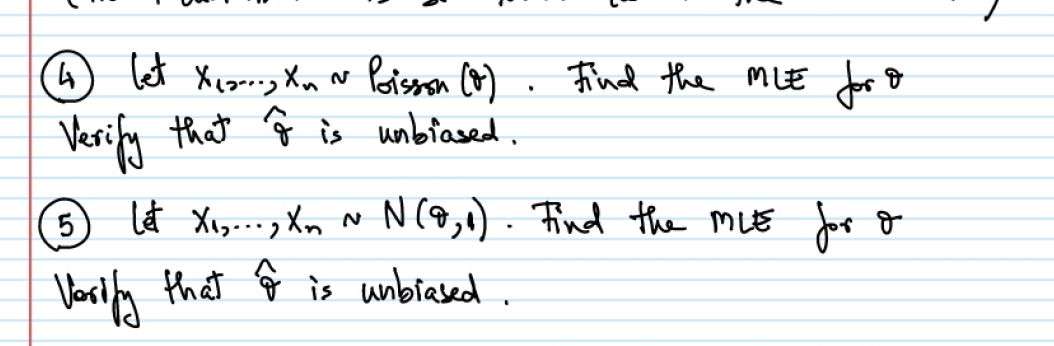 ④ Let X₁,...,Xₙ ~ Poisson (θ). Find the MLE for θ
Verify that θ̂ is unbiased.
⑤ Let X₁,...,Xₙ ~ N(θ,1). Find the MLE for θ
Verify that θ̂ is unbiased.